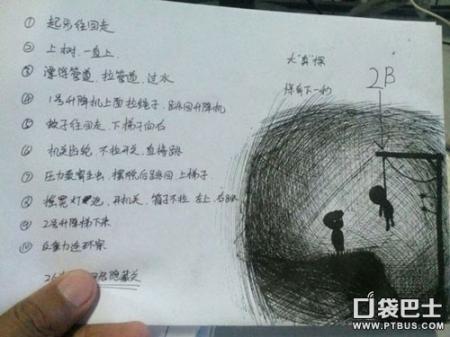 ① 起步往回走
② 上树.一直上
③ 漂浮管道.拉管道.过水
④ 1号升降机上面拉绳子.跳回升降机
⑤ 蚊子往回走.下梯子向右
⑥ 机关齿轮.不拉开关.直接跳
⑦ 压力泵寄生虫.摆脱后跳回上梯子
⑧ 灯泡.开机关.箱子不拉.左上.右跳
⑨ 2号升降梯下来
⑩ 反重力连环
隐藏关
2B
口袋巴士
WWW.PTBUS.COM